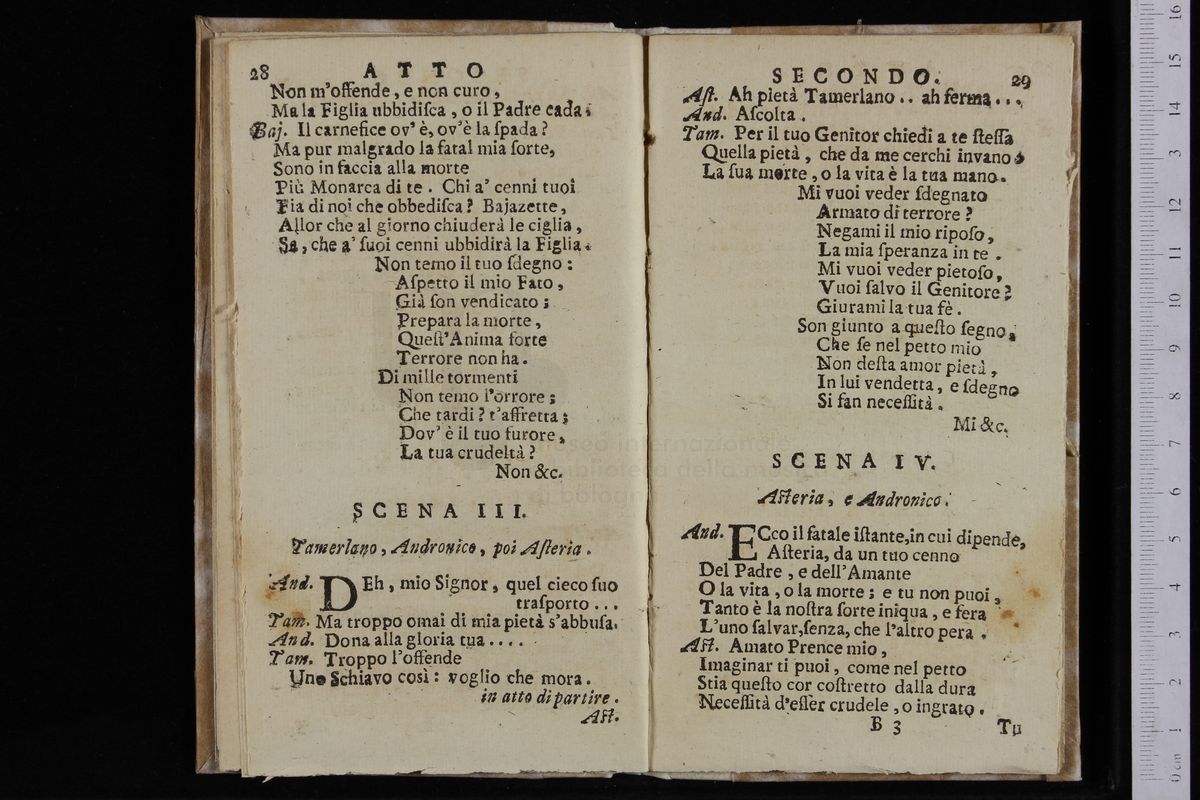 28 ATTO
Non m'offende, e non curo,
Ma la Figlia ubbidiſca, o il Padre cada.
Baj. Il carnefice ov' è, ov'è la ſpada?
Ma pur malgrado la fatal mia ſorte,
Sono in faccia alla morte
Più Monarca di te. Chi a' cenni tuoi
Fia di noi che obbediſca? Bajazette,
Allor che al giorno chiuderà le ciglia,
Sa, che a' ſuoi cenni ubbidirà la Figlia.
Non temo il tuo ſdegno:
Aſpetto il mio Fato,
Già ſon vendicato;
Prepara la morte,
Queſt'Anima forte
Terrore non ha.
Di mille tormenti
Non temo l'orrore;
Che tardi? t'affretta;
Dov' è il tuo furore,
La tua crudeltà?
Non &c.
SCENA III.
Tamerlano, Andronico, poi Aſteria.
And. DEh, mio Signor, quel cieco ſuo
traſporto...
Tam. Ma troppo omai di mia pietà s'abbuſa.
And. Dona alla gloria tua....
Tam. Troppo l'offende
Uno Schiavo così: voglio che mora.
in atto di partire.
Aſt.
SECONDO. 29
Aſt. Ah pietà Tamerlano.. ah ferma...
And. Aſcolta.
Tam. Per il tuo Genitor chiedi a te ſteſſa
Quella pietà, che da me cerchi invano;
La ſua morte, o la vita è la tua mano.
Mi vuoi veder ſdegnato
Armato di terrore?
Negami il mio ripoſo,
La mia ſperanza in te.
Mi vuoi veder pietoſo,
Vuoi ſalvo il Genitore?
Giurami la tua fè.
Son giunto a queſto ſegno,
Che ſe nel petto mio
Non deſta amor pietà,
In lui vendetta, e ſdegno
Si fan neceſſità.
Mi &c.
SCENA IV.
Aſteria, e Andronico.
And. ECco il fatale iſtante,in cui dipende,
Aſteria, da un tuo cenno
Del Padre, e dell'Amante
O la vita, o la morte; e tu non puoi,
Tanto è la noſtra ſorte iniqua, e fera
L'uno ſalvar,ſenza, che l'altro pera.
Aſt. Amato Prence mio,
Imaginar ti puoi, come nel petto
Stia queſto cor coſtretto dalla dura
Neceſſità d'eſſer crudele, o ingrato.
B 3 Tu
museo internazionale
e biblioteca della musica
di bologna
0 cm 1 2 3 4 5 6 7 8 9 10 11 12 13 14 15 16